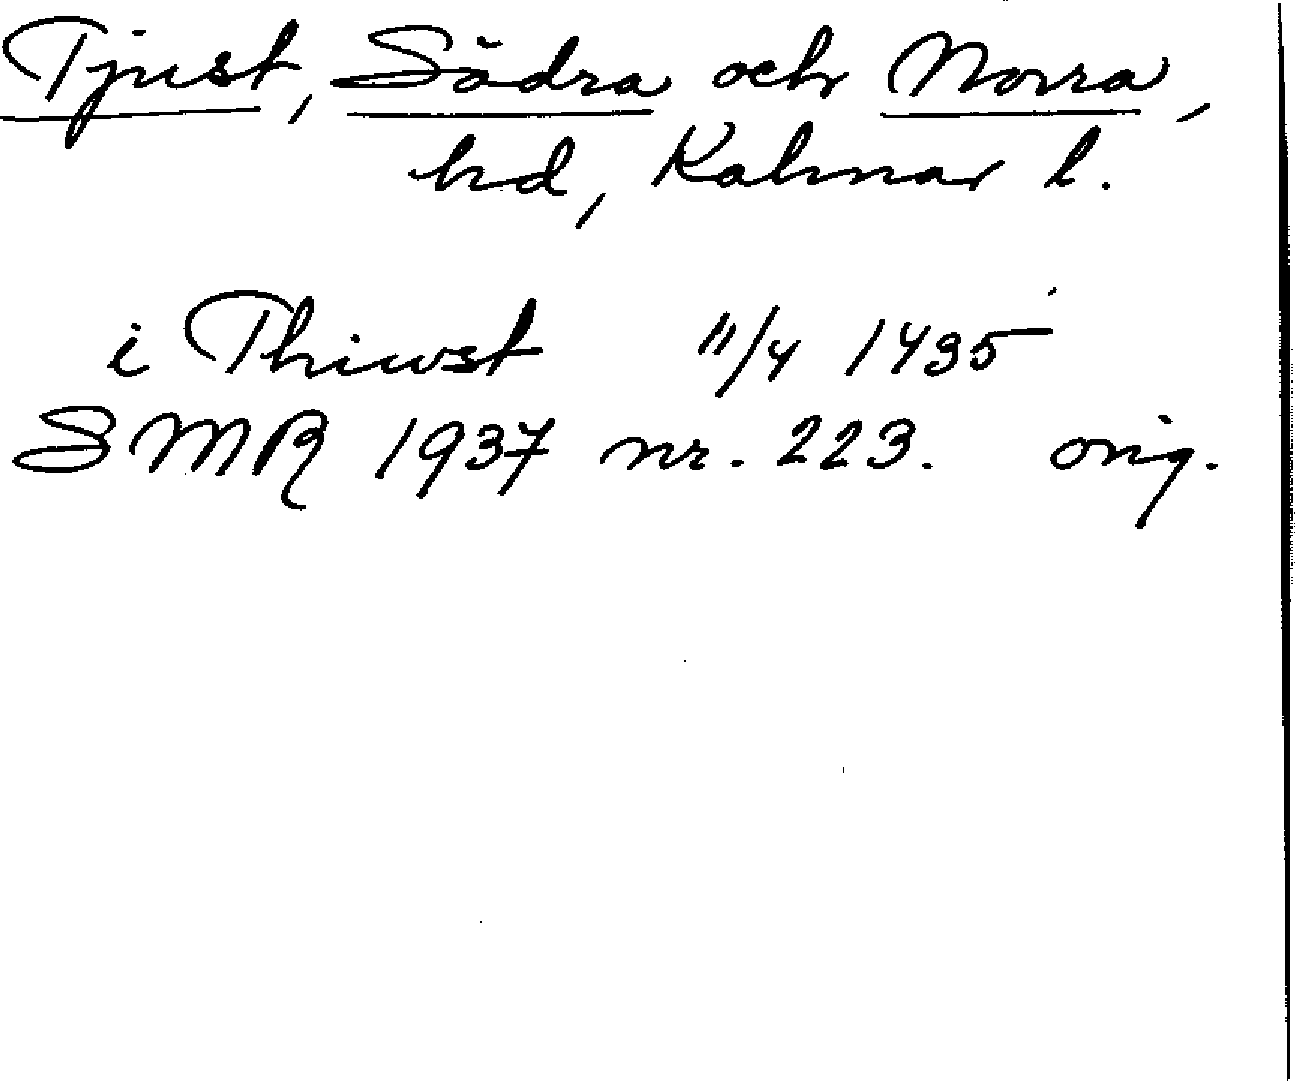 Tjust, Södra och Norra,
hd, Kalmar l.
i Thiwst 11/4 1435
SMR 1937 nr. 223. orig.